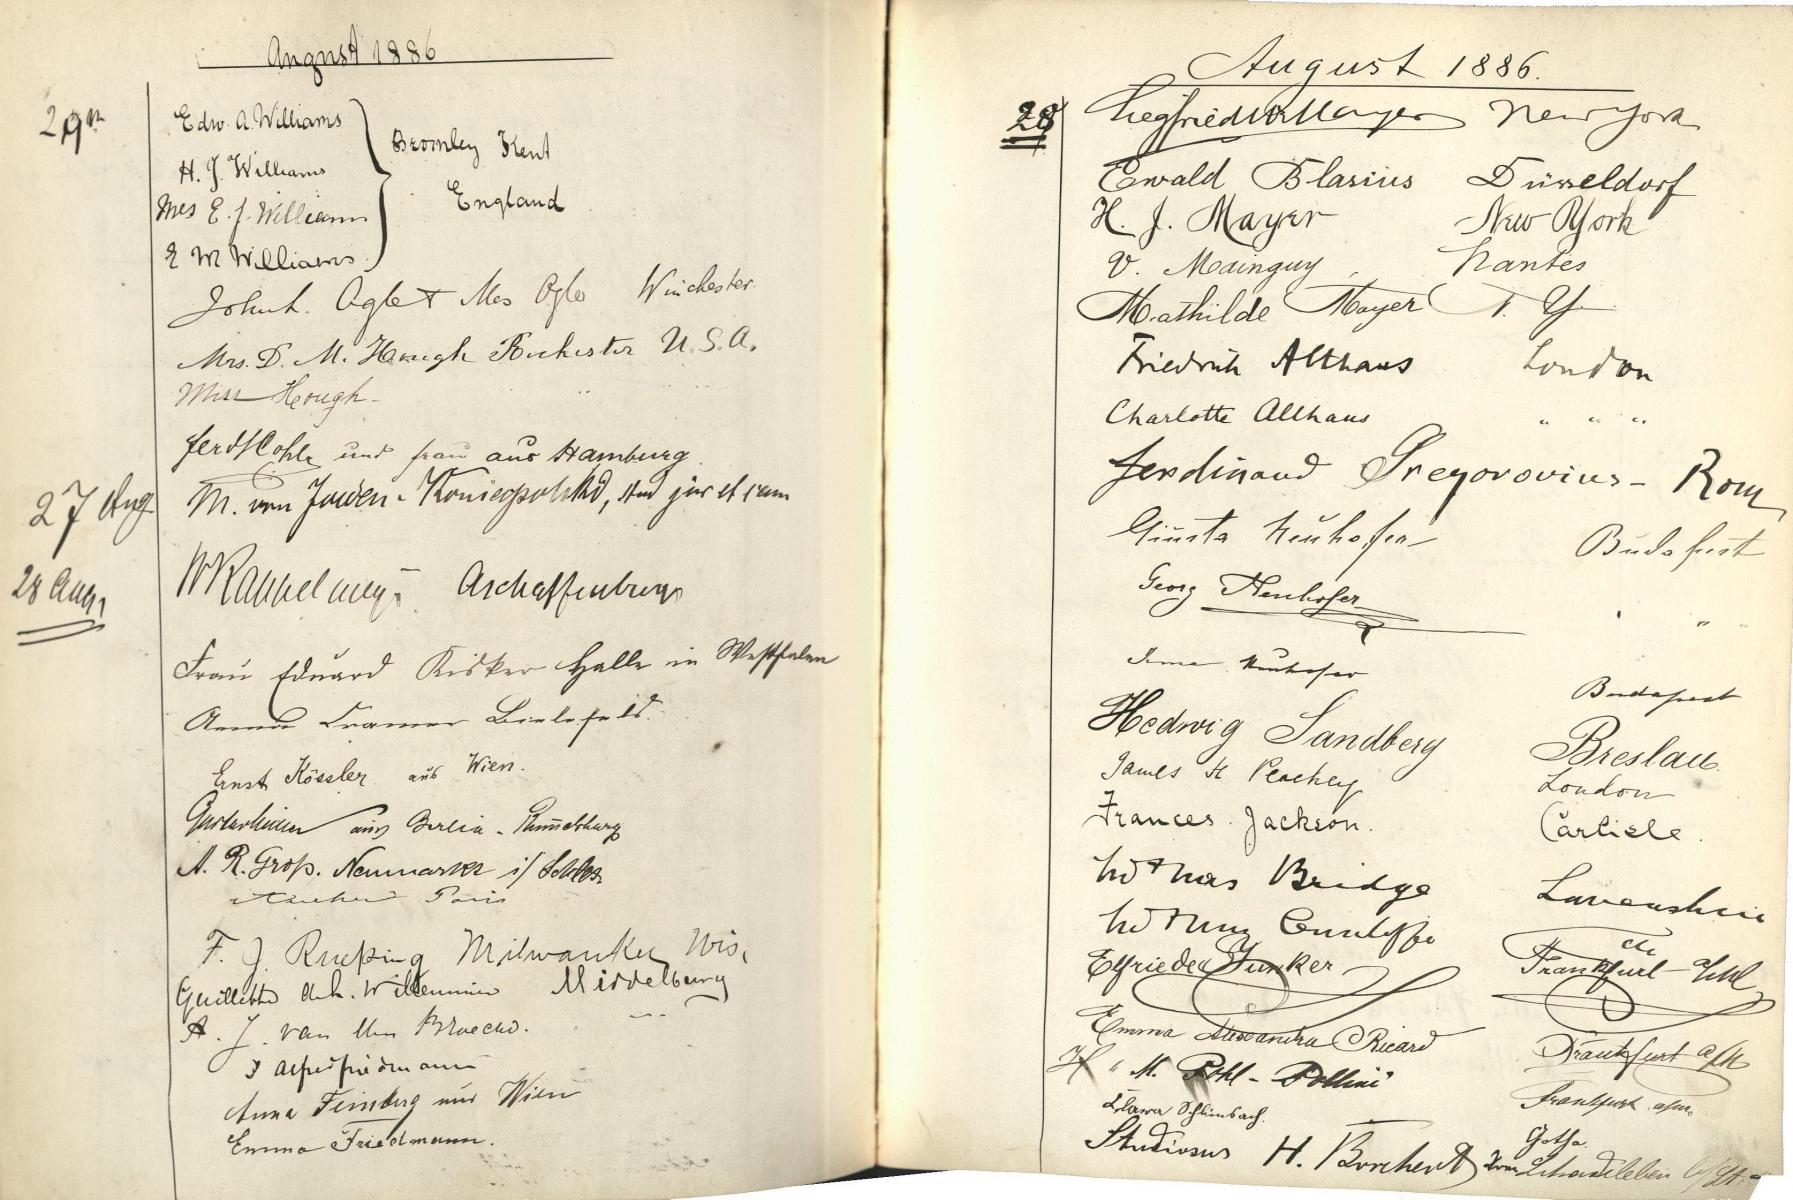 August 1886
29th
Edw. A. Williams
H. J. Williams
Mrs E. J. Williams
E M Williams
Bromley Kent
England
John h. Ogle + Mrs Ogle Winchester
Mrs. D. M. Hough Rochester U.S.A.
Miss Hough
Ferd und Frau aus Hamburg
27 Aug
M. von
28 Aug
Aschaffenburg
Frau Eduard Kisker Halle in Westfalen
Anna Cramer Bielefeld.
Ernst Kössler aus Wien.
aus Berlin - Rummelsburg
A. R. Groß. Neumarkt i/ Schles
Paris
F. J. Rueping Milwaukee Wis.
Middelburg
A. J. van den Broecke.
Alfred Friedmann
Anna Feinberg aus Wien
Emma Friedmann.
August 1886.
28
Siegfried Mayer New York
Ewald Blasius Düsseldorf
H. J. Mayer New York
V. Mainguy, Nantes
Mathilde Mayer N. Y.
Friedrich Althaus London
Charlotte Althaus " " "
Ferdinand Gregorovius - Rom
Giusta Neuhofer Budapest
Georg Neuhofer " "
Irma Neuhofer Budapest
Hedwig Sandberg Breslau.
James H Peachey London
Frances Jackson. Carlisle.
Bridge
Cunliffe
Elfriede Junker Frankfurt
Emma Alexandra Ricard Frankfurt a/M
H " M. Pohl - Pollini Frankfurt a/m.
Clara Schlimbach. Gotha.
Studiosus H. Borchert